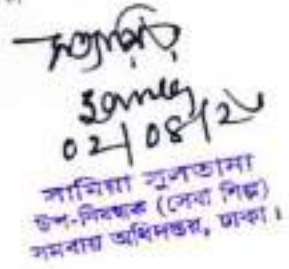 সত্যায়িত
02/08/2
সামিয়া সুলতানা
উপ-নিবন্ধক (সেবা শিল্প)
সমবায় অধিদপ্তর, ঢাকা।